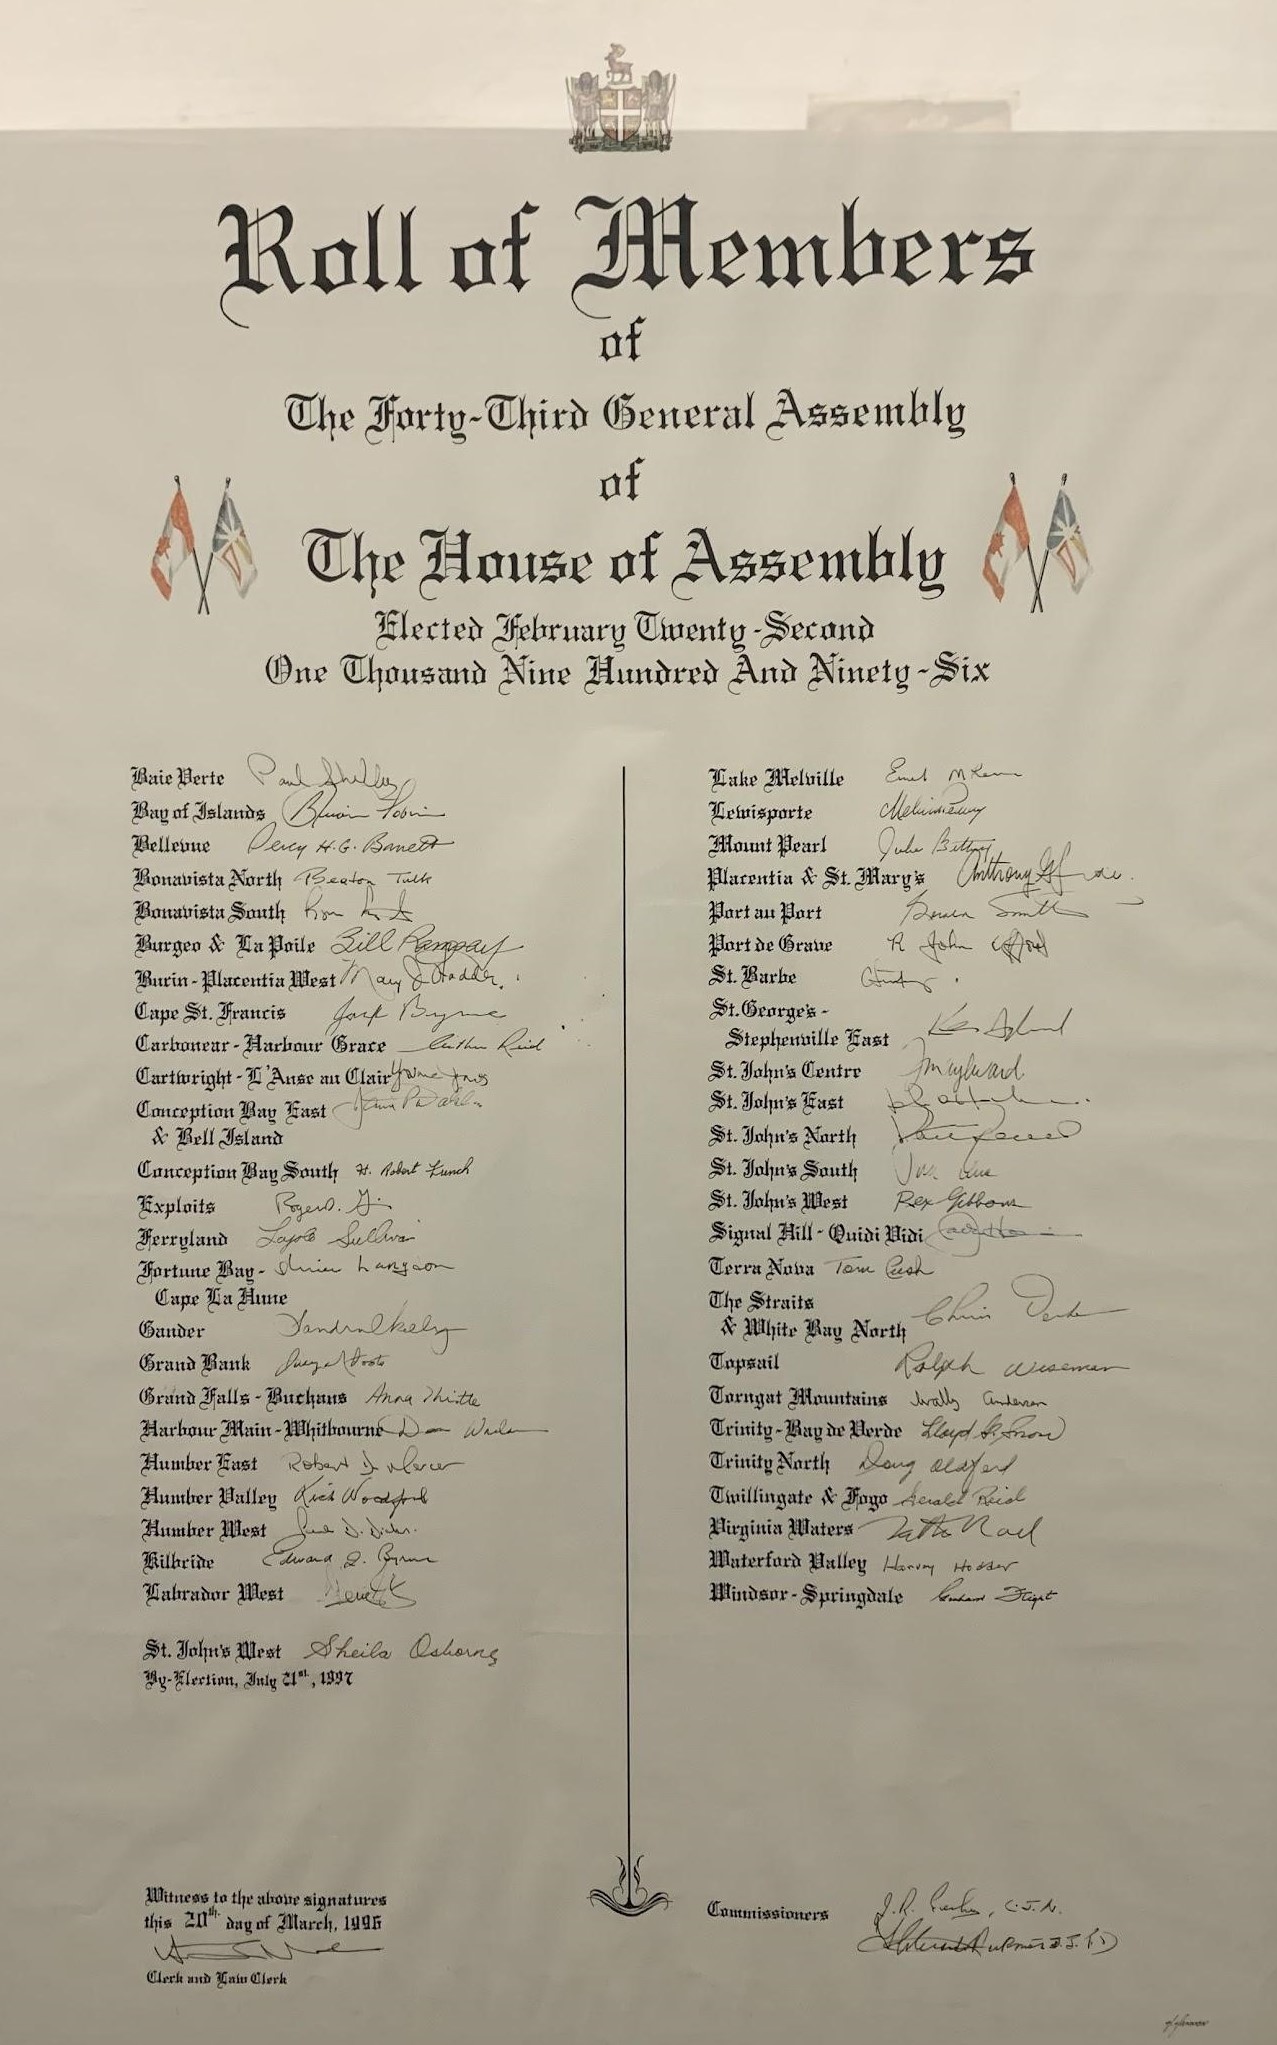 Roll of Members
of
The Forty-Third General Assembly
of
The House of Assembly
Elected February Twenty-Second
One Thousand Nine Hundred And Ninety-Six
Baie Verte Paul Shelley
Bay of Islands Brian Tobin
Bellevue Percy H.G. Barrett
Bonavista North Beaton Tulk
Bonavista South
Burgeo & La Poile Bill Ramsay
Burin-Placentia West Mary J Hodder
Cape St. Francis Jack Byrne
Carbonear-Harbour Grace Arthur Reid
Cartwright-L'Anse au Clair Yvonne Jones
Conception Bay East
& Bell Island
Conception Bay South H. Robert French
Exploits Roger D.
Ferryland Loyola Sullivan
Fortune Bay- Oliver Langdon
Cape La Hune
Gander Sandra C Kelly
Grand Bank Judy M Foote
Grand Falls-Buchans Anna Thistle
Harbour Main-Whitbourne Don Whelan
Humber East Robert J. Mercer
Humber Valley Rick Woodford
Humber West Paul D. Dicks
Kilbride Edward J. Byrne
Labrador West
St. John's West Sheila Osborne
By-Election, July 21st, 1997
Lake Melville Ernest McLean
Lewisporte Melvin Penney
Mount Pearl Julie Bettney
Placentia & St. Mary's Anthony
Port au Port Gerald Smith
Port de Grave R John Efford
St. Barbe
St. George's-
Stephenville East Kev Aylward
St. John's Centre J M Aylward
St. John's East
St. John's North
St. John's South
St. John's West Rex Gibbons
Signal Hill-Quidi Vidi
Terra Nova Tom Lush
The Straits
& White Bay North Chris Decker
Topsail Ralph Wiseman
Torngat Mountains Wally Andersen
Trinity-Bay de Verde Lloyd G. Snow
Trinity North Doug Oldford
Twillingate & Fogo Gerald Reid
Virginia Waters Noel
Waterford Valley Harvey Hodder
Windsor-Springdale Graham Flight
Witness to the above signatures
this 20th day of March, 1996
Clerk and Law Clerk
Commissioners J.R. , C.J.N.